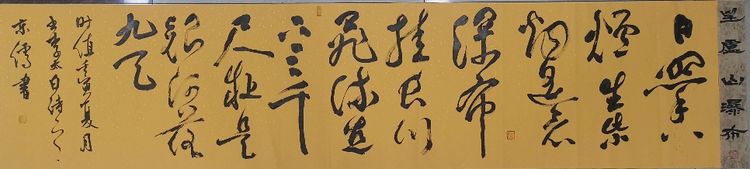 望廬山瀑布
日照香
爐生紫
烟遥看
瀑布
挂前川
飛流直
下三千
尺疑是
銀河落
九天
时值壬寅夏月
書李太白詩一首
書